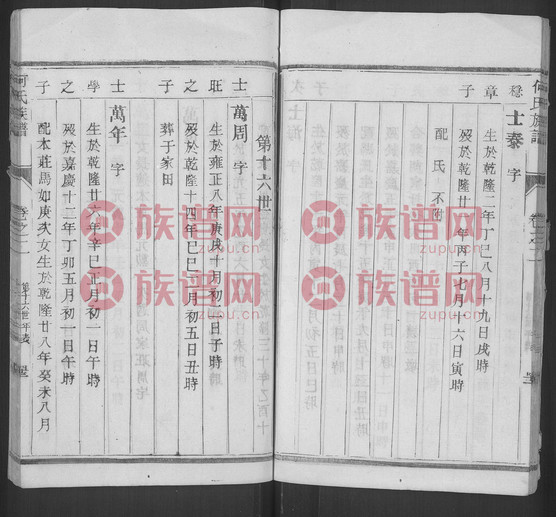 何氏族譜
卷之二
稳章子
士泰 字
生於乾隆二年丁巳八月十九日戌時
歿於乾隆廿一年丙子七月十六日寅時
配氏不附
第十六世
士旺之子
萬周 字
生於雍正八年庚戌十月初二日子時
歿於乾隆十四年己巳三月初五日丑時
葬于家田
士學之子
萬年 字
生於乾隆廿六年辛巳正月初一日午時
歿於嘉慶十二年丁卯五月初一日午時
配本莊馬如庚次女生於乾隆廿八年癸未八月
何氏族譜
卷之二
第十六世年表
族谱网
zupu.cn
族谱网
zupu.cn
族谱网
zupu.cn
族谱网
zupu.cn